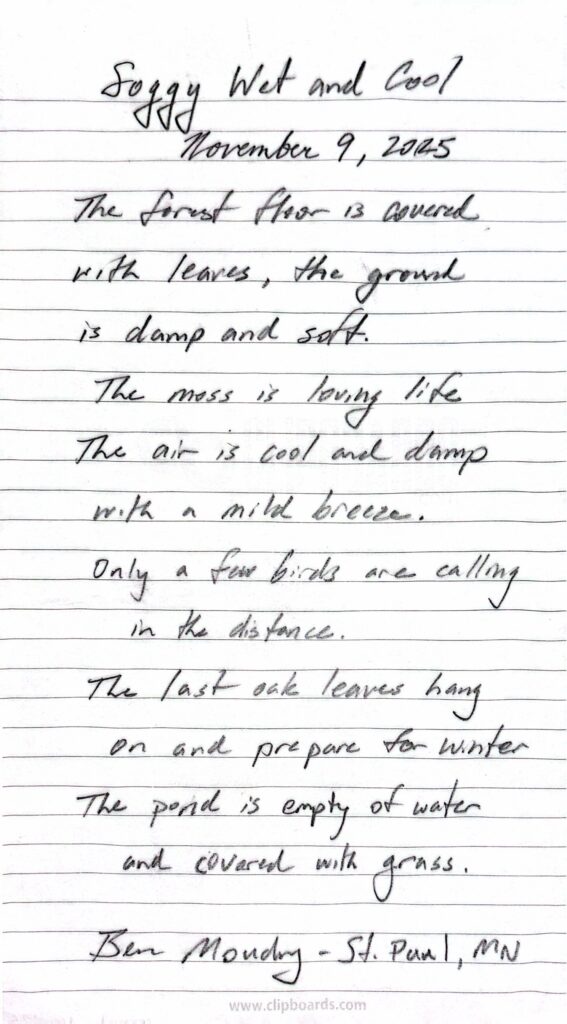 Soggy Wet and Cool
November 9, 2025
The forest floor is covered
with leaves, the ground
is damp and soft.
The moss is loving life
The air is cool and damp
with a mild breeze.
Only a few birds are calling
in the distance.
The last oak leaves hang
on and prepare for winter
The pond is empty of water
and covered with grass.
Ben Moudry - St. Paul, MN
www.clipboards.com